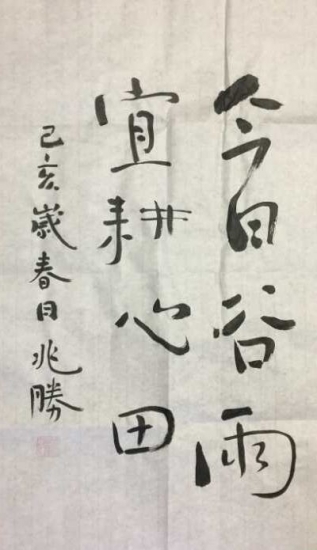 今日谷雨
宜耕心田
己亥歲春日兆勝